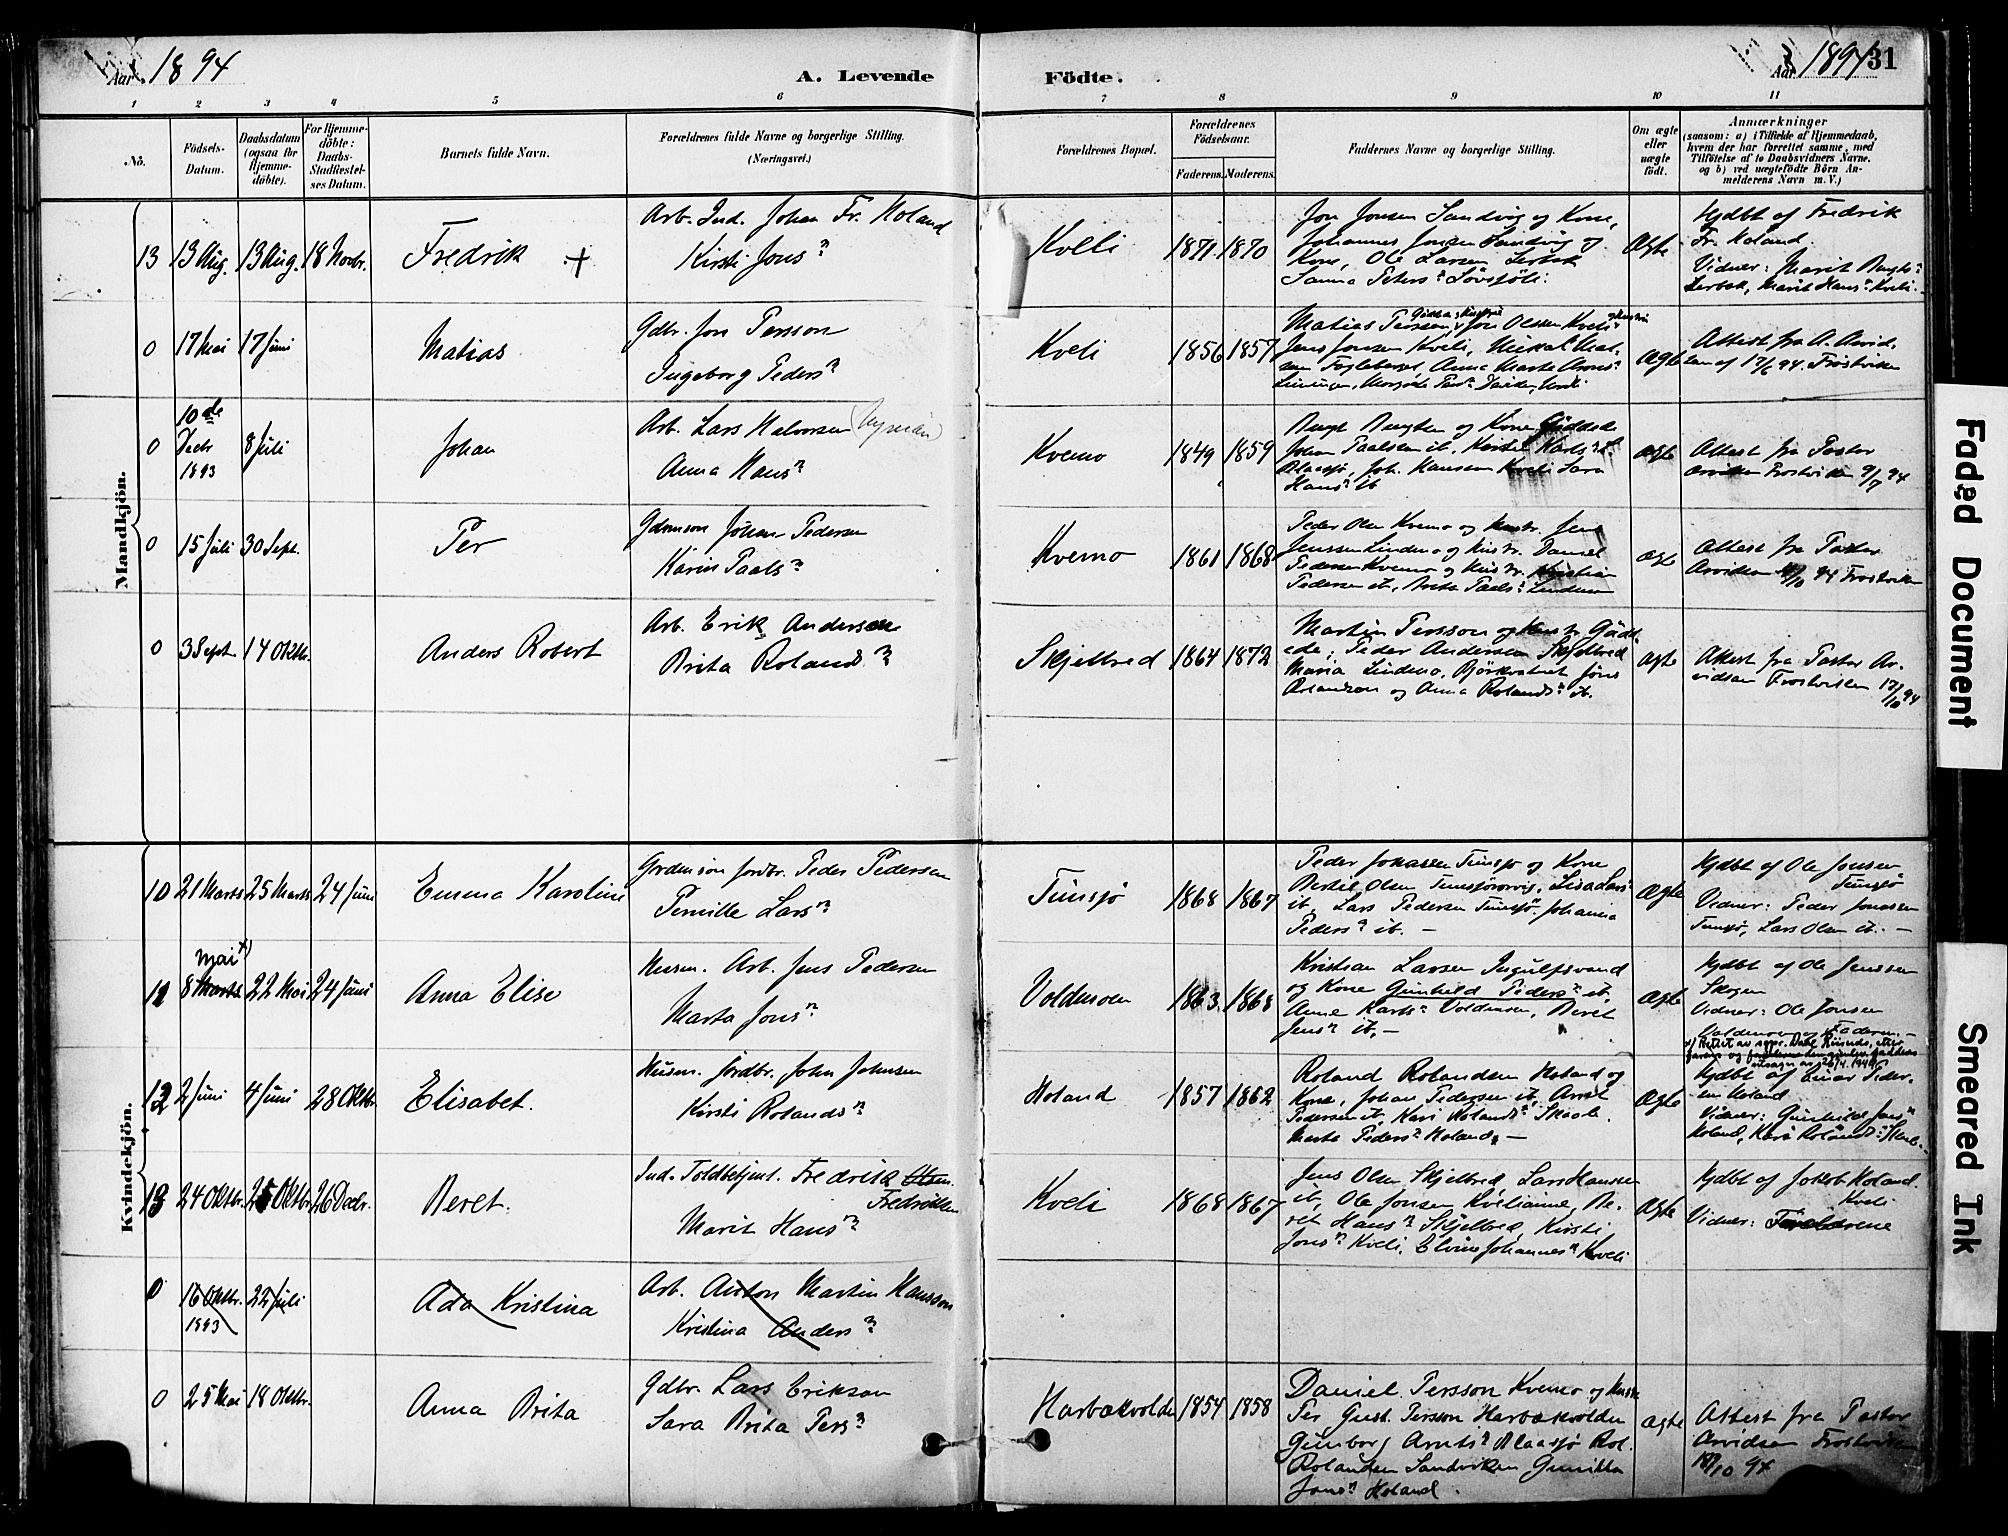 Aar 1894
A. Levende
Födte.
Aar 1894
31
1 2 3 4 5 6 7 8 9 10 11
No.
Födsels-
Datum.
Daabsdatum
(ogsaa for
Hjemme-
döbte).
For Hjemme-
döbte:
Daabs-
Stadfæstel-
ses Datum.
Barnets fulde Navn.
Forældrenes fulde Navne og borgerlige Stilling.
(Næringsvei.)
Forældrenes Bopæl.
Forældrenes
Födselsaar.
Faderens. Moderens.
Faddernes Navne og borgerlige Stilling.
Om ægte
eller
uægte
födt.
Anmærkninger
(saasom: a) i Tilfælde af Hjemmedaab,
hvem der har forrettet samme, med
Tilföielse af to Daabsvidners Navne.
og b) ved uægtefödte Börn An-
melderens Navn m. V.)
Mandkjön.
13 13 Aug. 13 Aug. 18 Novbr. Fredrik +
Arb. Ind. Johan Fr. Holand
Kirsti Jonsn
Kveli 1871 1870
Jon Jonsen Sandvig og Kone,
Johannes Jonsen Sandvig og
Kone, Ole Larsen Lerbak
Sanna Petersn Lövsjöli.
Ægte
Hjdbt af Fredrik
Fr. Holand.
Vidner: Marit
Lerbak, Marit Hansn Kveli.
0 17 Mai 17 Juni Matias
Gdbr. Jon Persson
Ingeborg Pedersn
Kveli 1856 1857
Matias Persson, Jon Olsen Kveli
Jens Jonsen Kveli, Mikal
Fogleberget, Anna Marta
Ægte
Attest fra A. Arvid-
sen af 17/6 94. Frostviken
0 10de
Decbr
1893
8 Juli Johan
Arb. Lars Halvorsen (Nyman)
Anna Hansn
Kvemo 1849 1859
Bengt Bengtsen og Kone Gäddede
Johan Paalsen it. Kirsti Karlsn
Blaasjö, Joh. Hansen Kveli Sara
Hansn it
Ægte
Attest fra Pastor
Frostviken 9/7 94
0 15 Juli 30 Sept. Per
Gdmson Johan Pedersen
Karin Paalsn
Kvemo 1861 1868
Peder Olsen Kvemo og Hustr. Jens
Jenssen Lindmo og Hustr. Daniel
Pedersen Kvemo og Hustr. Kristian
Pedersen it, Brita Paalsn Lindmo
Ægte
Attest fra Pastor
Arvidsen /10 94 Frostviken
0 3 Sept. 14 Oktbr. Anders Robert
Arb. Erik Andersen
Brita Rolandsn
Skjelbred 1864 1872
Martin Persson og Hustr Gädd-
ede, Peder Andersen Skjelbred
Maria Lindmo, Björkvatnet Jöns
Rolandson og Anna Rolandsn it.
Ægte
Attest fra Pastor Ar-
vidsen Frostviken 17/10 94
Kvindekjön.
10 21 Marts 25 Marts 24 Juni Emma Karoline
Grdmsön Jordbr. Peder Pedersen
Pernille Larsn
Tunsjø 1868 1867
Peder Jonassen Tunsjø og Kone
Bertil Olsen Tunsjørørvig, Lisa Larsn
it, Lars Pedersen Tunsjø, Johanna
Pedersn it. –
Ægte
Hjdbt af Ole Jonsen
Tunsjø
Vidner: Peder Jonassen
Tunsjø, Lars Olsen it. –
11 Mai x)
8 Marts 22 Mai 24 Juni Anna Elise
Husm. Arb. Jens Pedersen
Marta Jonsn
Voldmoen 1863. 1868
Kristian Larsen Ingulfsvand
og Kone Gunhild Pedersn it,
Anne Karlsn Voldmoen, Beret
Jensn it. –
Ægte
Hjdbt af Ole Jenssen
Skogen
Vidner: Ole Jonsen
Voldmoen og Faderen. –
x) Rettet av sogn.
26/4 1940
12 2 Juni 4 Juni 28 Oktbr Elisabet.
Husm. Jordbr. John Johnsen
Kirsti Rolandsn
Holand 1857 1862
Roland Rolandsen Holand og
Kone, Johan Pedersen it, Arnt
Pedersen it, Kari Rolandsn Skaale.
Marta Pedersn Holand. –
Ægte
Hjdbt af Einar Peder-
sen Holand
Vidner: Gunhild Jonsn
Holand, Kari Rolandsn Skaale.
13 24 Oktbr. 25 Oktbr 26 Decbr. Beret.
Ind. Toldbetjent. Fredrik Olsen.
Fredriksen
Marit Hansn
Kveli 1868 1867
Jens Olsen Skjelbred, Lars Hansen
it, Ole Jonsen Kvelianne, Be-
ret Hansn Skjelbred, Kirsti
Jonsn Kveli, Elvine Johannesn Kveli
Ægte
Hjdbt af Jakob Holand.
Kveli
Vidner: Forældrene
0 16 Oktbr.
1893
22 Juli Ada Kristina
Arb. Anton Martin Hansson
Kristina Andersn
0 25 Mai 18 Oktbr. Anna Brita
Gdbr. Lars Erikson
Sara Brita Persn
Harbakvolden 1854 1858
Daniel Persson Kvemo og Hustr
Per Gust. Persson Harbakvolden
Gunborg Arntsn Blaasjö Rol.
Rolandsen Sandviken Gunilla
Jonsn Holand.
Ægte
Attest fra Pastor
Arvidsen Frostviken
/10 94
Faded Document
Smeared Ink